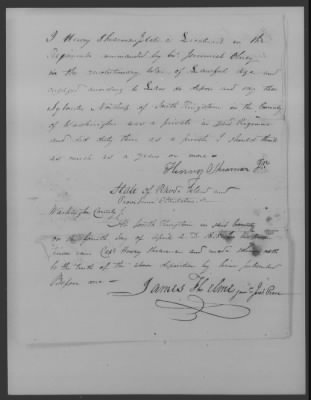 I Henry Sherman late a Lieutenant in the
Regiment commanded by Col Jeremiah Olney
in the revolutionary War of Lawful Age and
engaged according to Law do depose and say that
of South Kingstown in the County
of Washington was a private in said Regiment
and did duty there as a private I should think
as much as a year or more —
Henry Sherman
State of Rhode Island and
Providence Plantations
Washington County
At South Kingstown in said County
on the fourth day of April A D
came Capt Henry Sherman and made oath
to the truth of the above deposition by him subscribed
Before me —
James Helme Just Peace